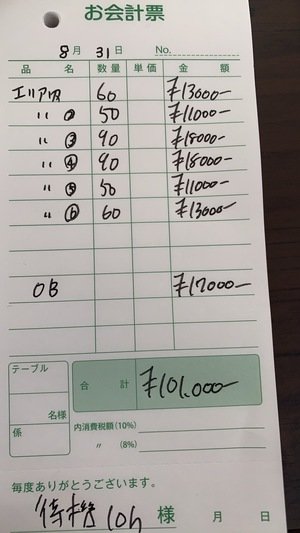 お会計票
8月 31日 No.
品 名 数量 単価 金 額
エリア① 60 ¥13000-
〃 ② 50 ¥11000-
〃 ③ 90 ¥18000-
〃 ④ 90 ¥18000-
〃 ⑤ 50 ¥11000-
〃 ⑥ 60 ¥13000-
OB ¥17000-
テーブル
合 計 ¥101.000-
名様
係
内消費税額(10%)
〃 (8%)
毎度ありがとうございます。
待機 10h 様 月 日